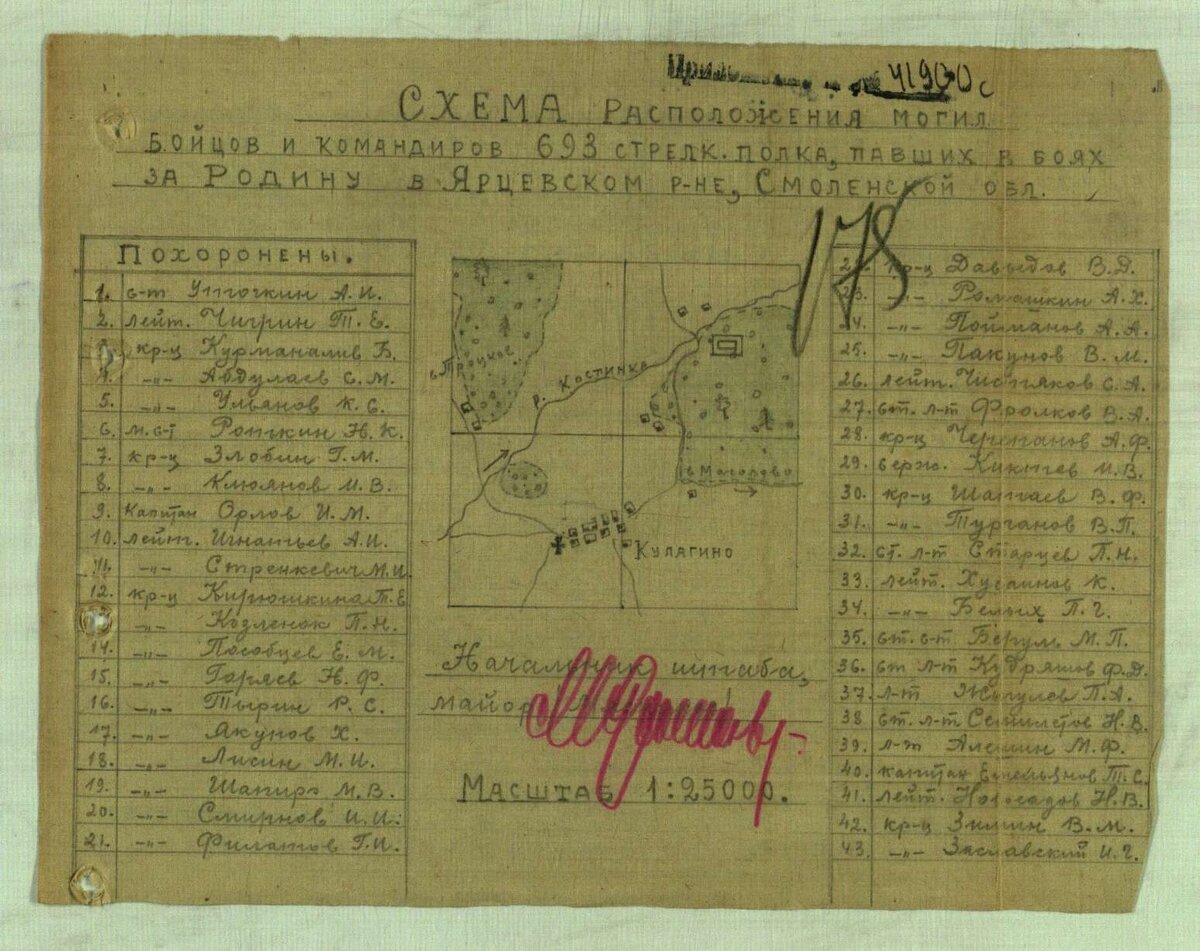 41900с
СХЕМА РАСПОЛОЖЕНИЯ МОГИЛ
БОЙЦОВ И КОМАНДИРОВ 693 СТРЕЛК. ПОЛКА, ПАВШИХ В БОЯХ
ЗА РОДИНУ В ЯРЦЕВСКОМ Р-НЕ, СМОЛЕНСКОЙ ОБЛ.
178
ПОХОРОНЕНЫ.
1. с-т Уточкин А.И.
2. лейт. Чигрин Т.Е.
кр-ц Курманалив Б.
4. -„- Абдулаев С.М.
5. -„- Ульянов К.С.
6. м.с-т Ропкин Н.К.
7. кр-ц Злобин Г.М.
8. -„- Клюянов И.В.
9. Капитан Орлов И.М.
10. лейт. Игнатьев А.И.
11. -„- Стренкевич М.И.
12. кр-ц Кирюшкина Т.Е.
-„- Козленок П.Н.
14. -„- Пособцев Е.М.
15. -„- Горяев Н.Ф.
16. -„- Тырин Р.С.
17. -„- Якунов Х.
18. -„- Лисин М.И.
19. -„- Шапиро М.В.
20. -„- Смирнов И.И.
21. -„- Филатов Г.И.
с. Троцкое
р. Костинка
в Маторово
КУЛАГИНО
Начальник штаба,
майор
МАСШТАБ 1:25000.
кр-ц Давыдов В.Д.
23. -„- Ромашкин А.Х.
24. -„- Пойманов А.А.
25. -„- Пакунов В.М.
26. лейт. Чистяков С.А.
27. ст. л-т Фролков В.А.
28. кр-ц Черепанов А.Ф.
29. серж. Кикичев И.В.
30. кр-ц Шатаев В.Ф.
31. -„- Турганов В.П.
32. ст. л-т Старцев П.Н.
33. лейт. Хусаинов К.
34. -„- Белых П.Г.
35. ст. с-т Бегуль М.П.
36. ст л-т Кудряшов Ф.Д.
37. л-т Жигулев П.А.
38 ст. л-т Семилетов Н.В.
39. л-т Алешин М.Ф.
40. капитан Емельянов Т.С.
41. лейт. Новосадов Н.В.
42. кр-ц Зимин В.М.
43. -„- Заславский И.Г.